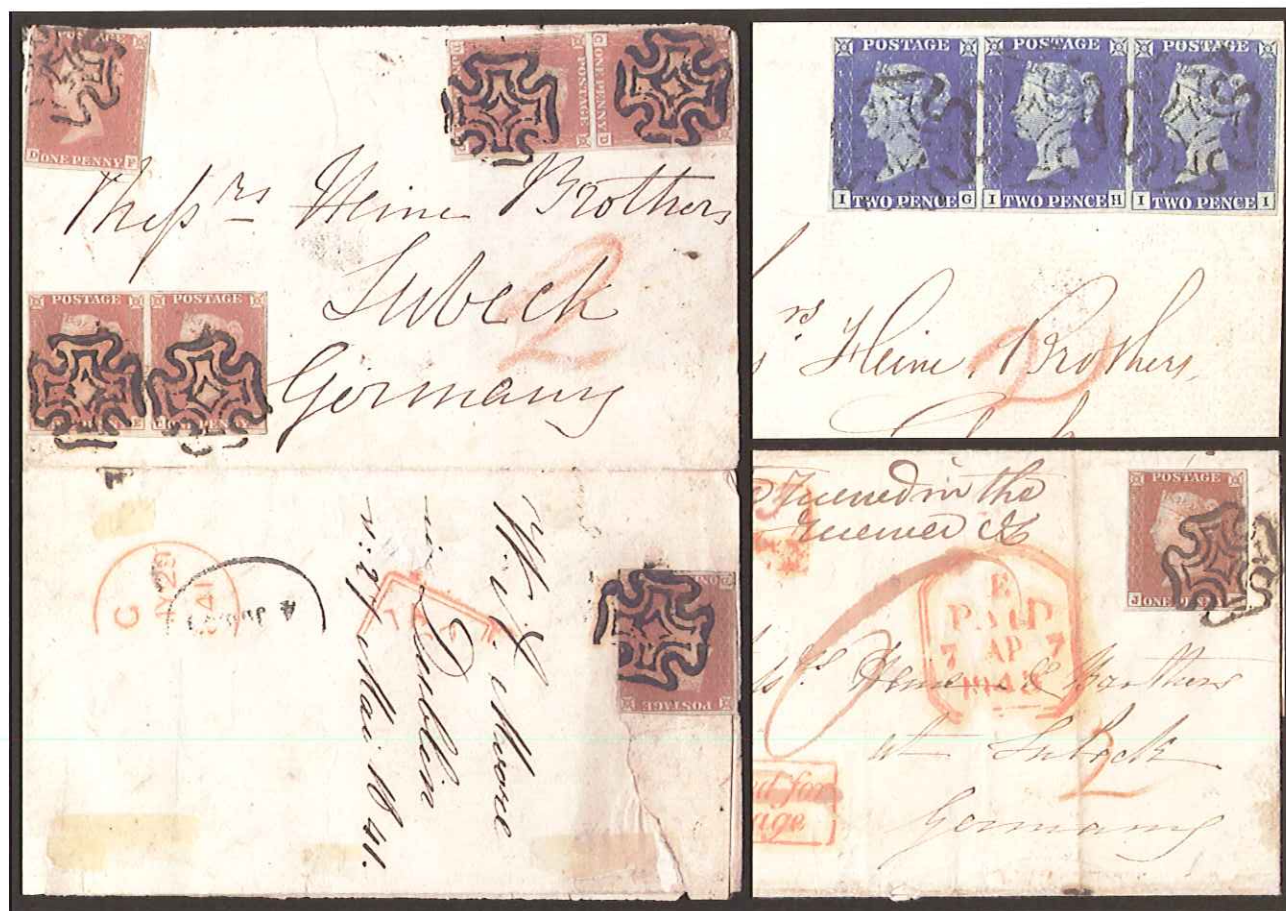 D ONE PENNY F
POSTAGE
ONE PENNY
Messrs Heine Brothers
Lubeck
2
Germany
POSTAGE POSTAGE
C
29
41
W. J. Moore
in Dublin
v. 27 Mai 1841.
POSTAGE
POSTAGE POSTAGE POSTAGE
I TWO PENCE G I TWO PENCE H I TWO PENCE I
rs Heine Brothers
2
in the
POSTAGE
J ONE
E
PAID
7 AP 7
1843
Brothers
at Lubeck
2
Germany
d for
age